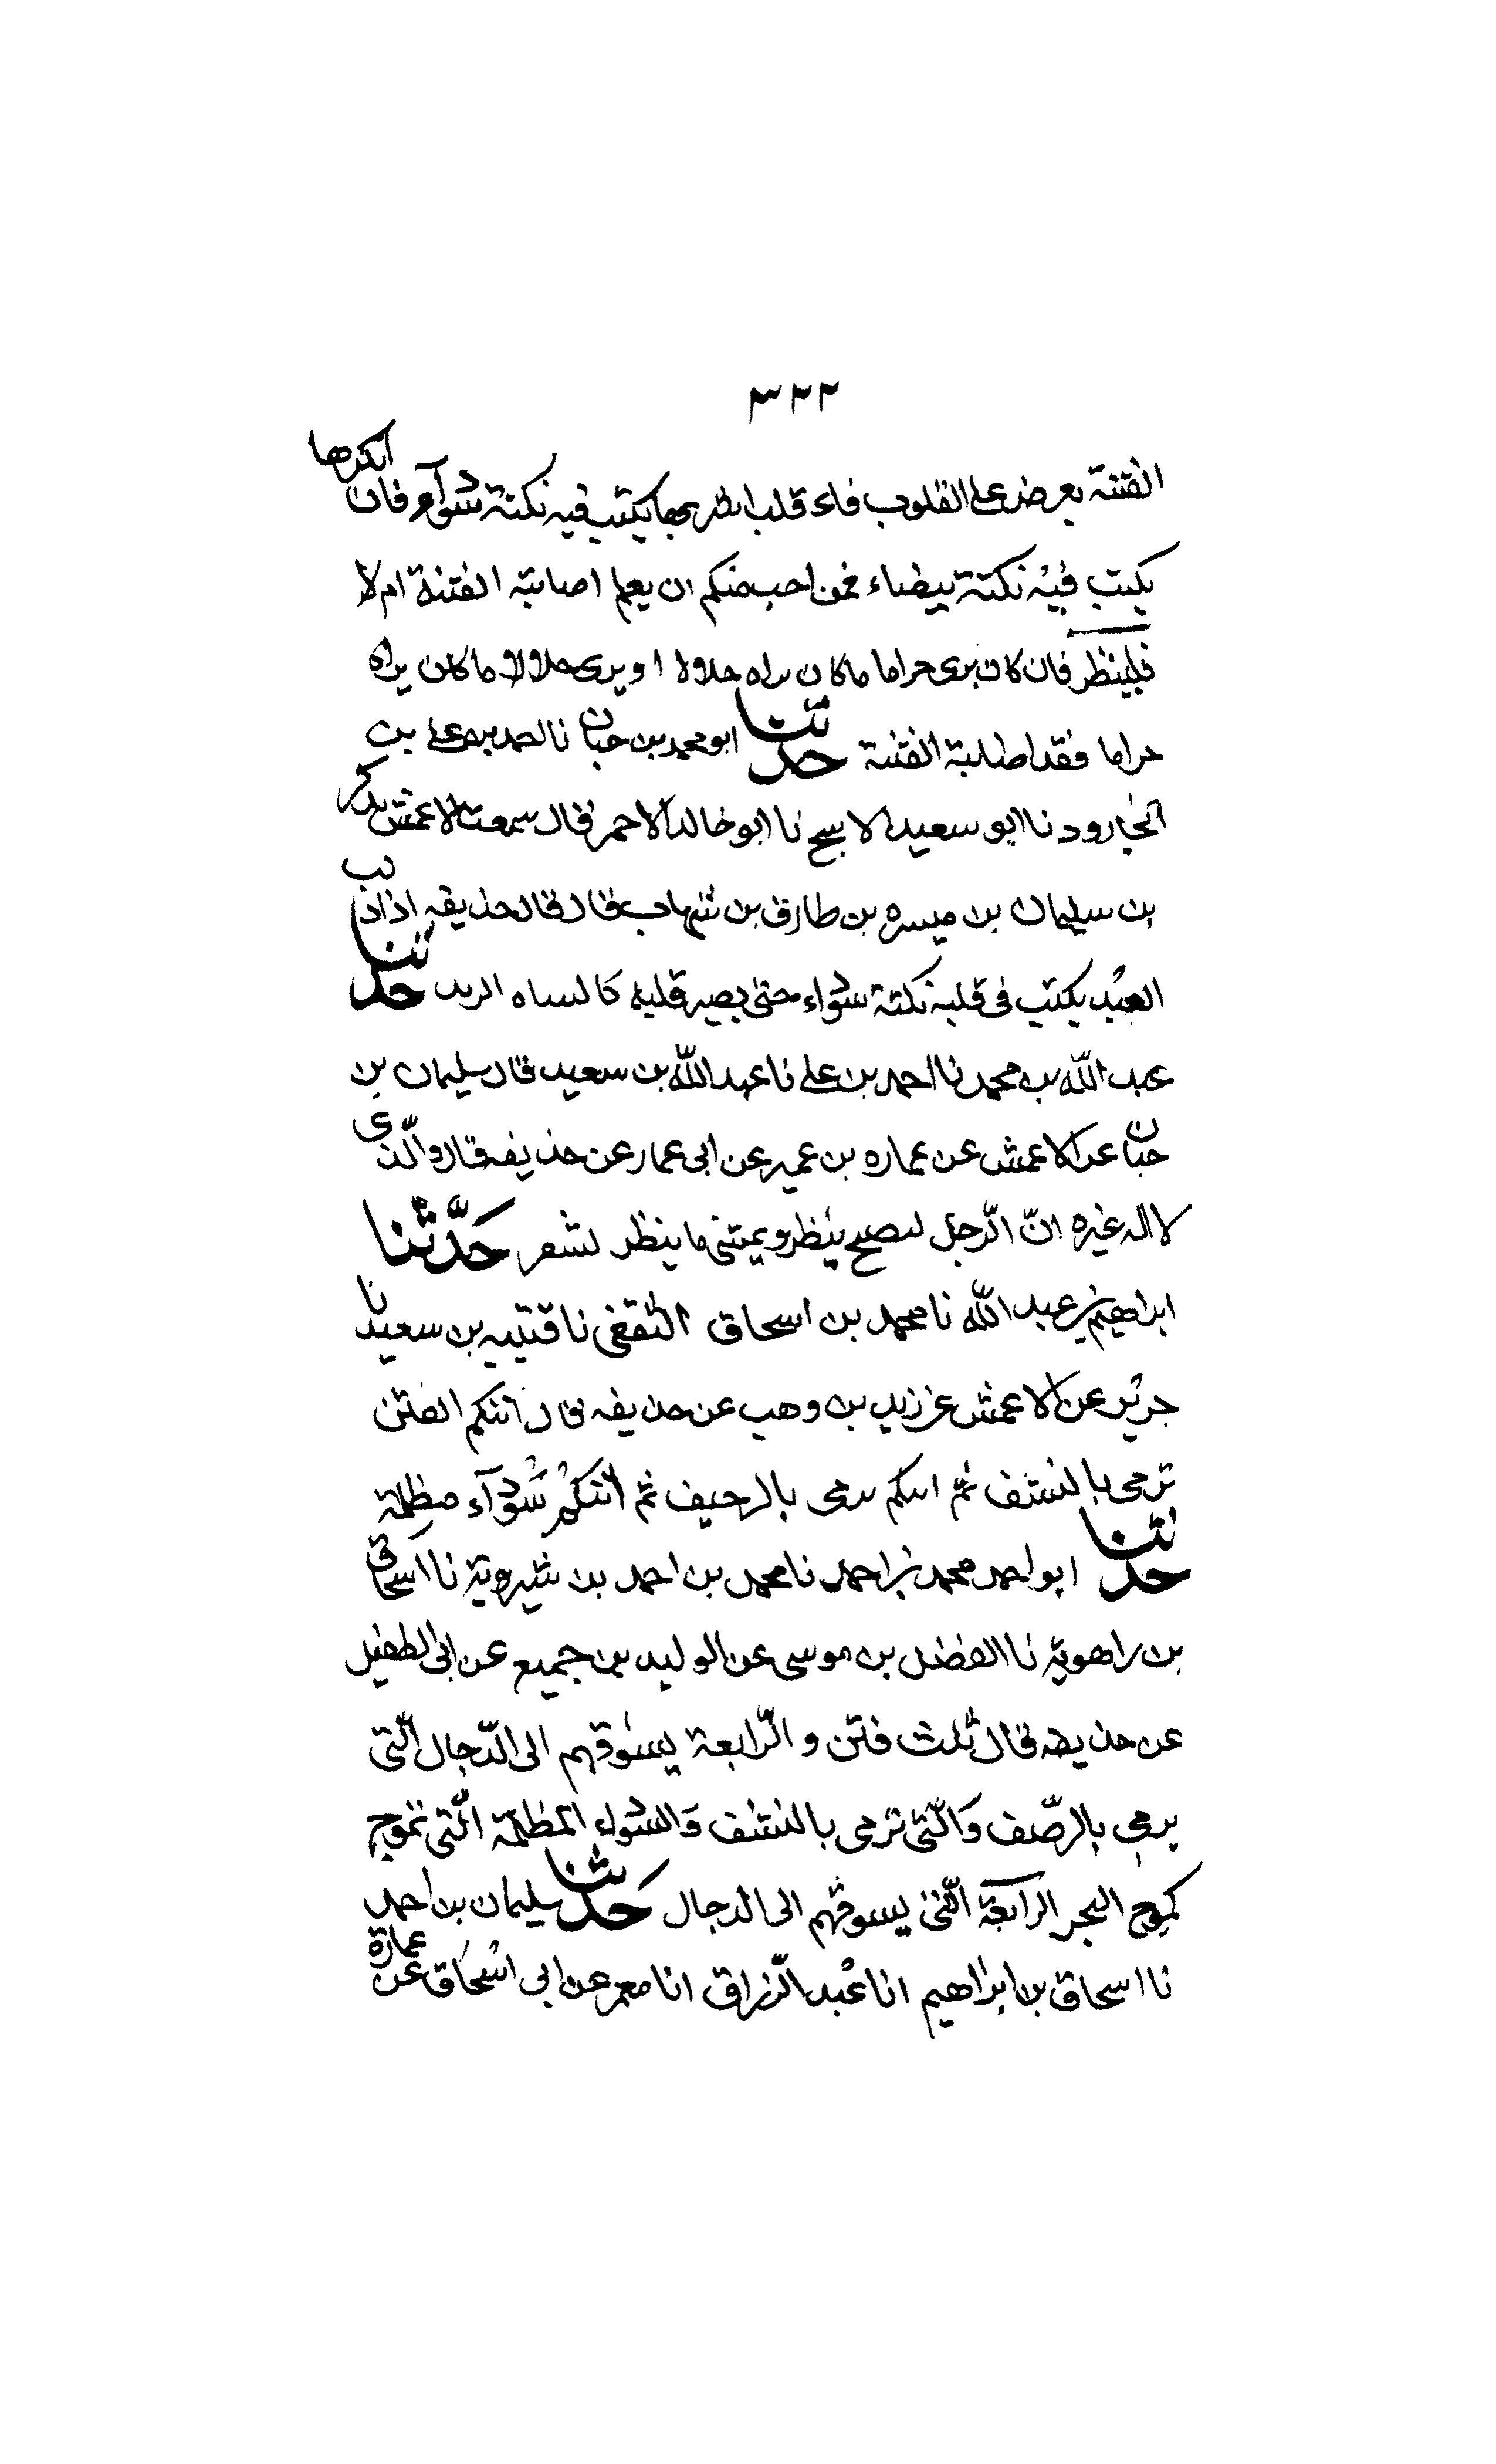 ٣٢٢
الفتنة يعرض على القلوب فاى قلب اشربها يكتب فيه نكتة سوآء فان انكرها
يكتب فيه نكتة بيضاء فمن احب منكم ان يعلم اصابته الفتنة ام لا
فلينظر فان كان يرى حراما ما كان يراه حلالا او يرى حلالا ما كان يراه
حراما فقد اصابته الفتنة حدثنا ابو محمد بن حبان نا احمد بن على بن
الجارود نا ابو سعيد الاشج نا ابو خالد الاحمر قال سمعت الاعمش يذكر
بن سليمان بن ميسره بن طارق بن شهاب قال قال حذيفه اذا اذنب
العبد يكتب فى قلبه نكتة سوداء حتى يصير قلبه كالساه الربد حدثنا
عبد الله بن محمد نا احمد بن على نا عبد الله بن سعيد قال سليمان بن
حبان عن الاعمش عن عماره بن عمير عن ابى عمار عن حذيفه قال والّذى
لا اله غيره انّ الرّجل ليصبح ينظر ويمسى ما ينظر بشفر حَدّثنا
ابراهيم بن عبد الله نا محمد بن اسحاق الثقفى نا قتيبه بن سعيد نا
جرير عن الاعمش عن زيد بن وهب عن حذيفه قال اتتكم الفتن
ترمى بالنشف ثم اتتكم ترمى بالرضف ثم أتتكم سَودآء مظلمة
حدثنا ابو احمد محمد بن احمد نا محمد بن احمد بن شيرويه نا اسحاق
بن راهويه نا الفضل بن موسى عن الوليد بن جميع عن ابى الطفيل
عن حذيفه قال ثلث فتن و الرّابعة يسوقهم الى الدّجال الّتى
يرمى بالرّضف وَالّتى ترمى بالنشف وَالسوداء المظلمة الّتى تموج
كموج البحر الرابعة الّتى يسوقهم الى الدجال حَدثنا سليمان بن احمد
نا اسحاق بن ابراهيم انا عبد الرّزاق انا معمر عن ابى اسحاق عن عمارة